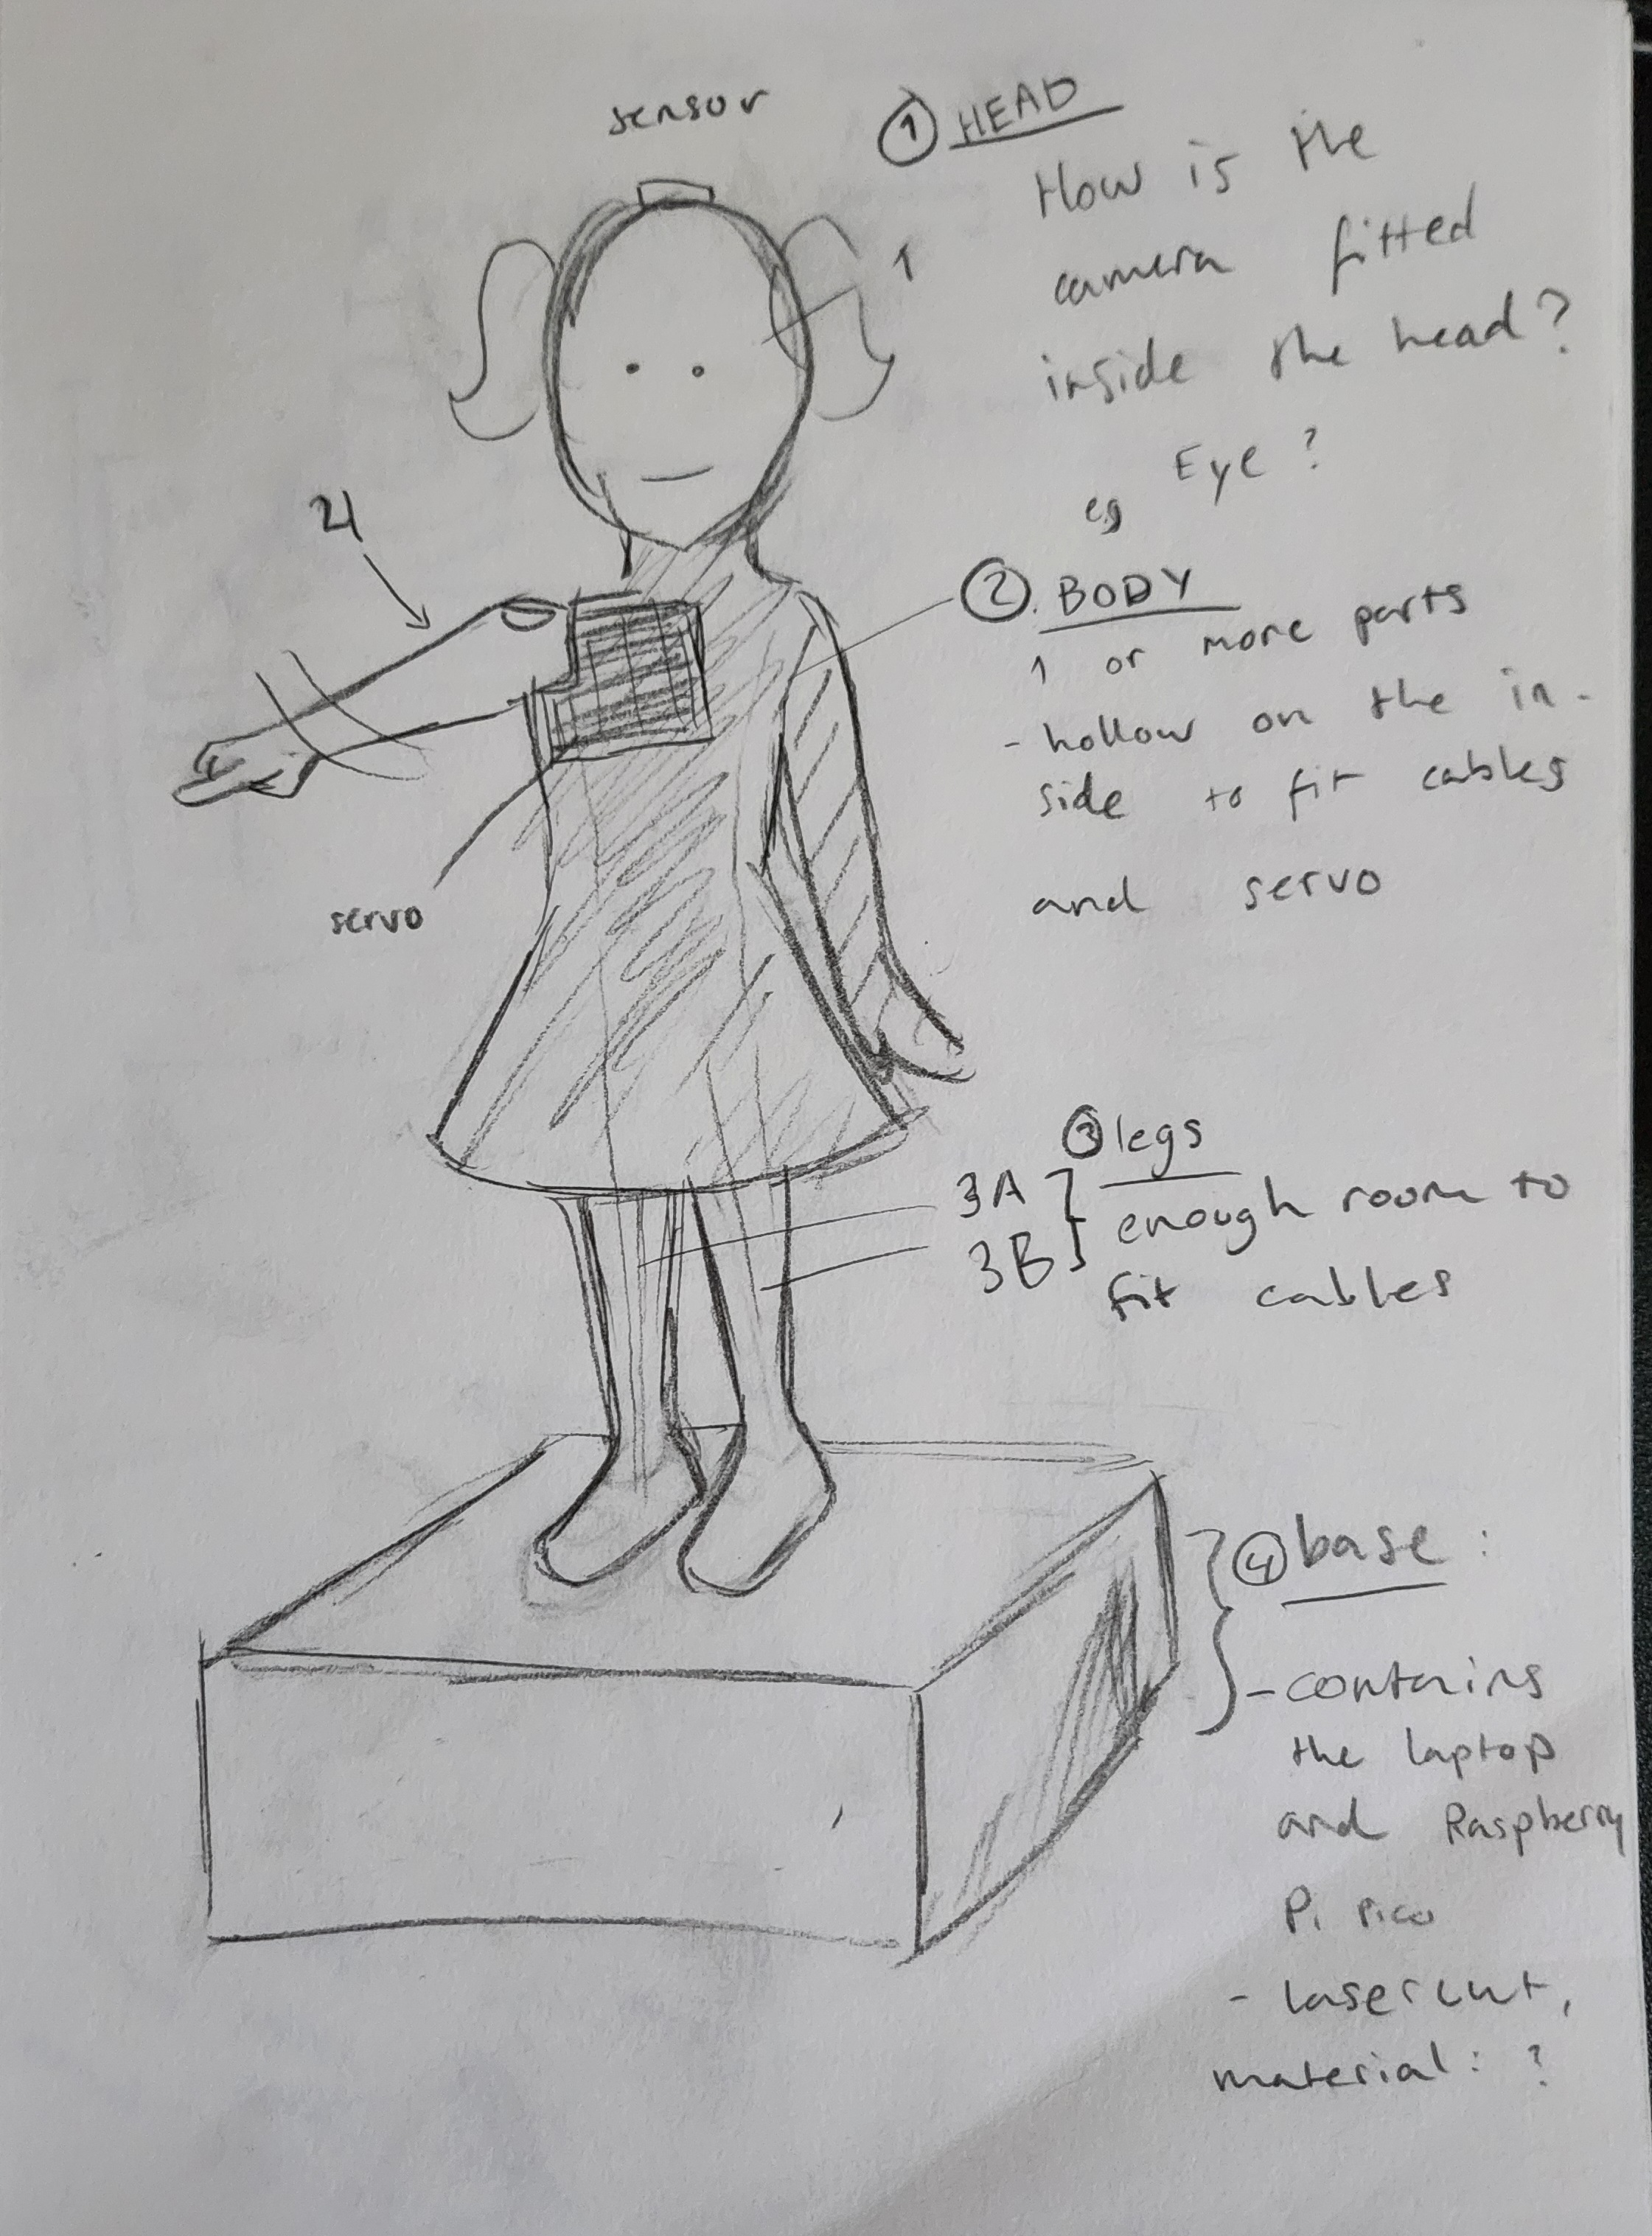 sensor
① HEAD
How is the
camera fitted
inside the head?
eg Eye?
1
4
② BODY
1 or more parts
- hollow on the in-
side to fit cables
and servo
servo
③ legs
3A
3B
enough room to
fit cables
④ base:
- contains
the laptop
and Raspberry
Pi Pico
- lasercut,
material: ?